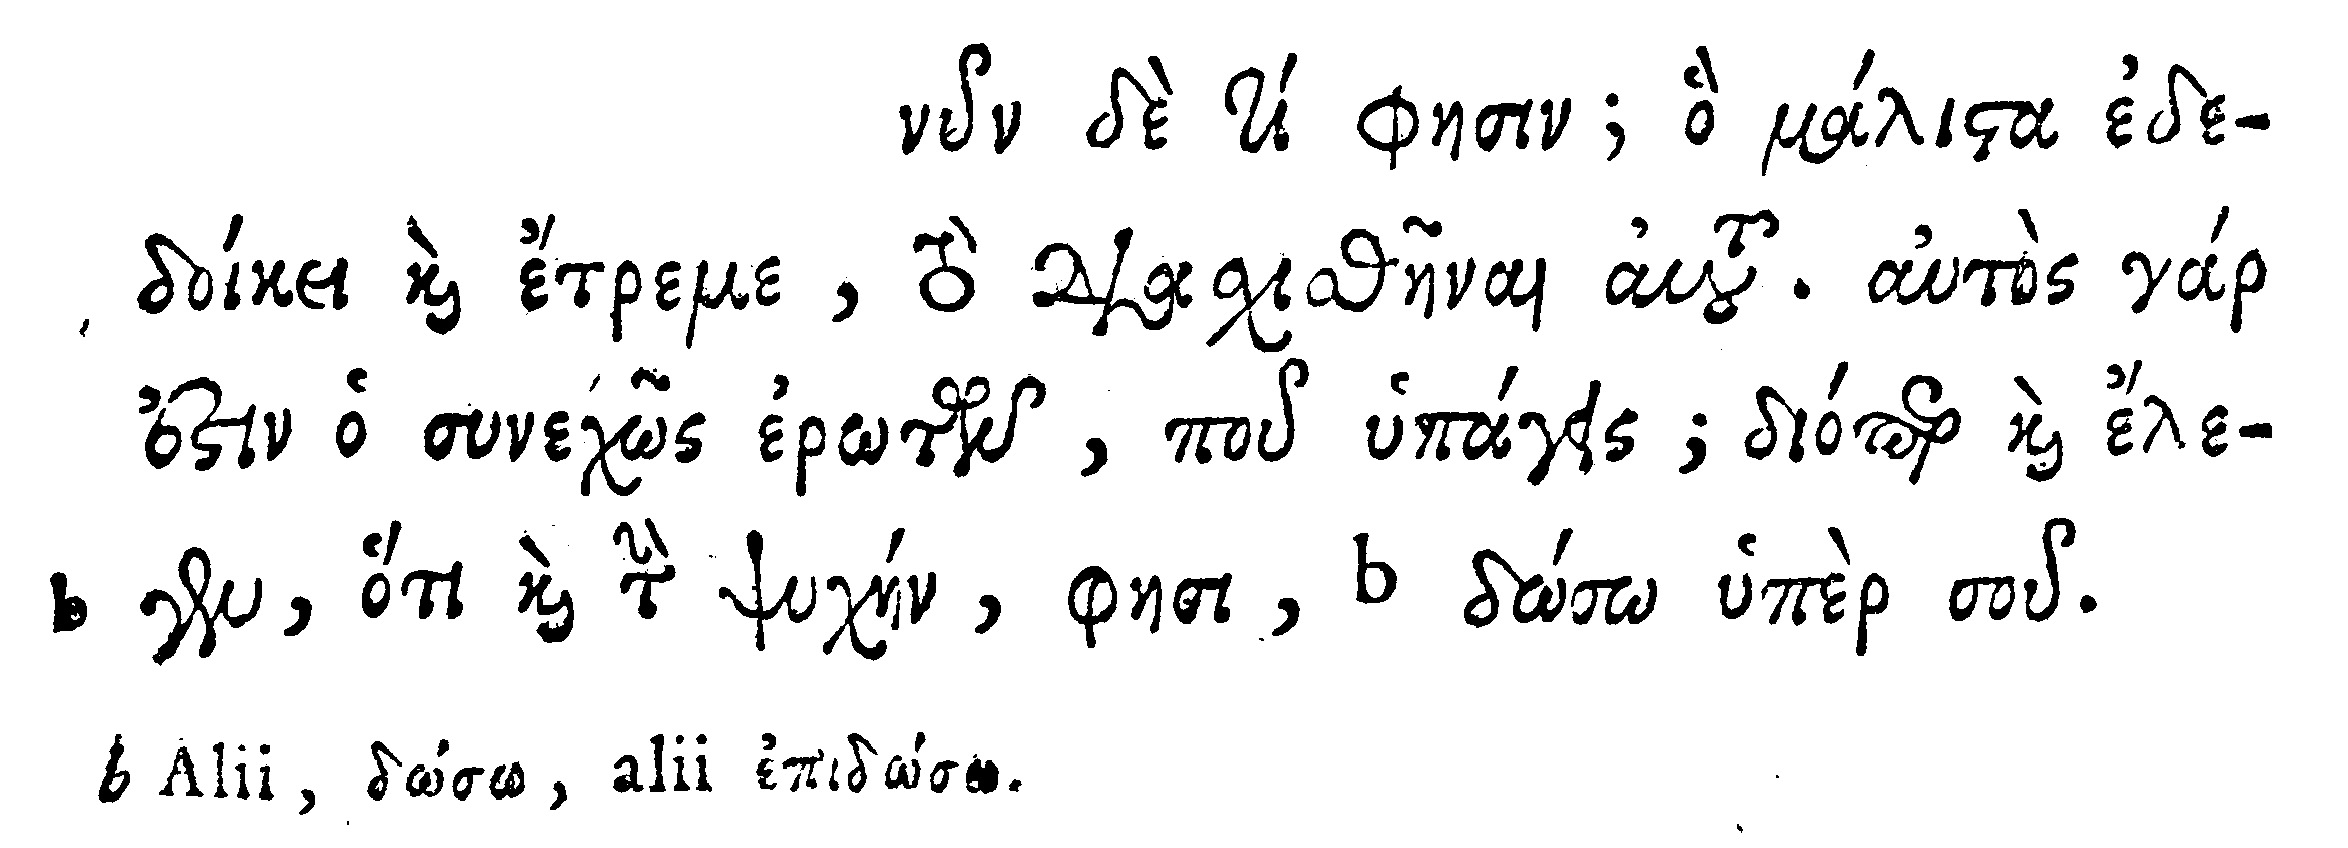 νῦν δὲ τί φησιν; ὃ μάλιστα ἐδε-
δοίκει καὶ ἔτρεμε, τὸ διαχωρισθῆναι αὐτοῦ. αὐτὸς γάρ
ἐστιν ὁ συνεχῶς ἐρωτῶν, ποῦ ὑπάγεις; διόπερ καὶ ἔλε-
b γεν, ὅτι καὶ τὴν ψυχήν, φησι, b δώσω ὑπὲρ σοῦ.
b Alii, δώσω, alii ἐπιδώσω.